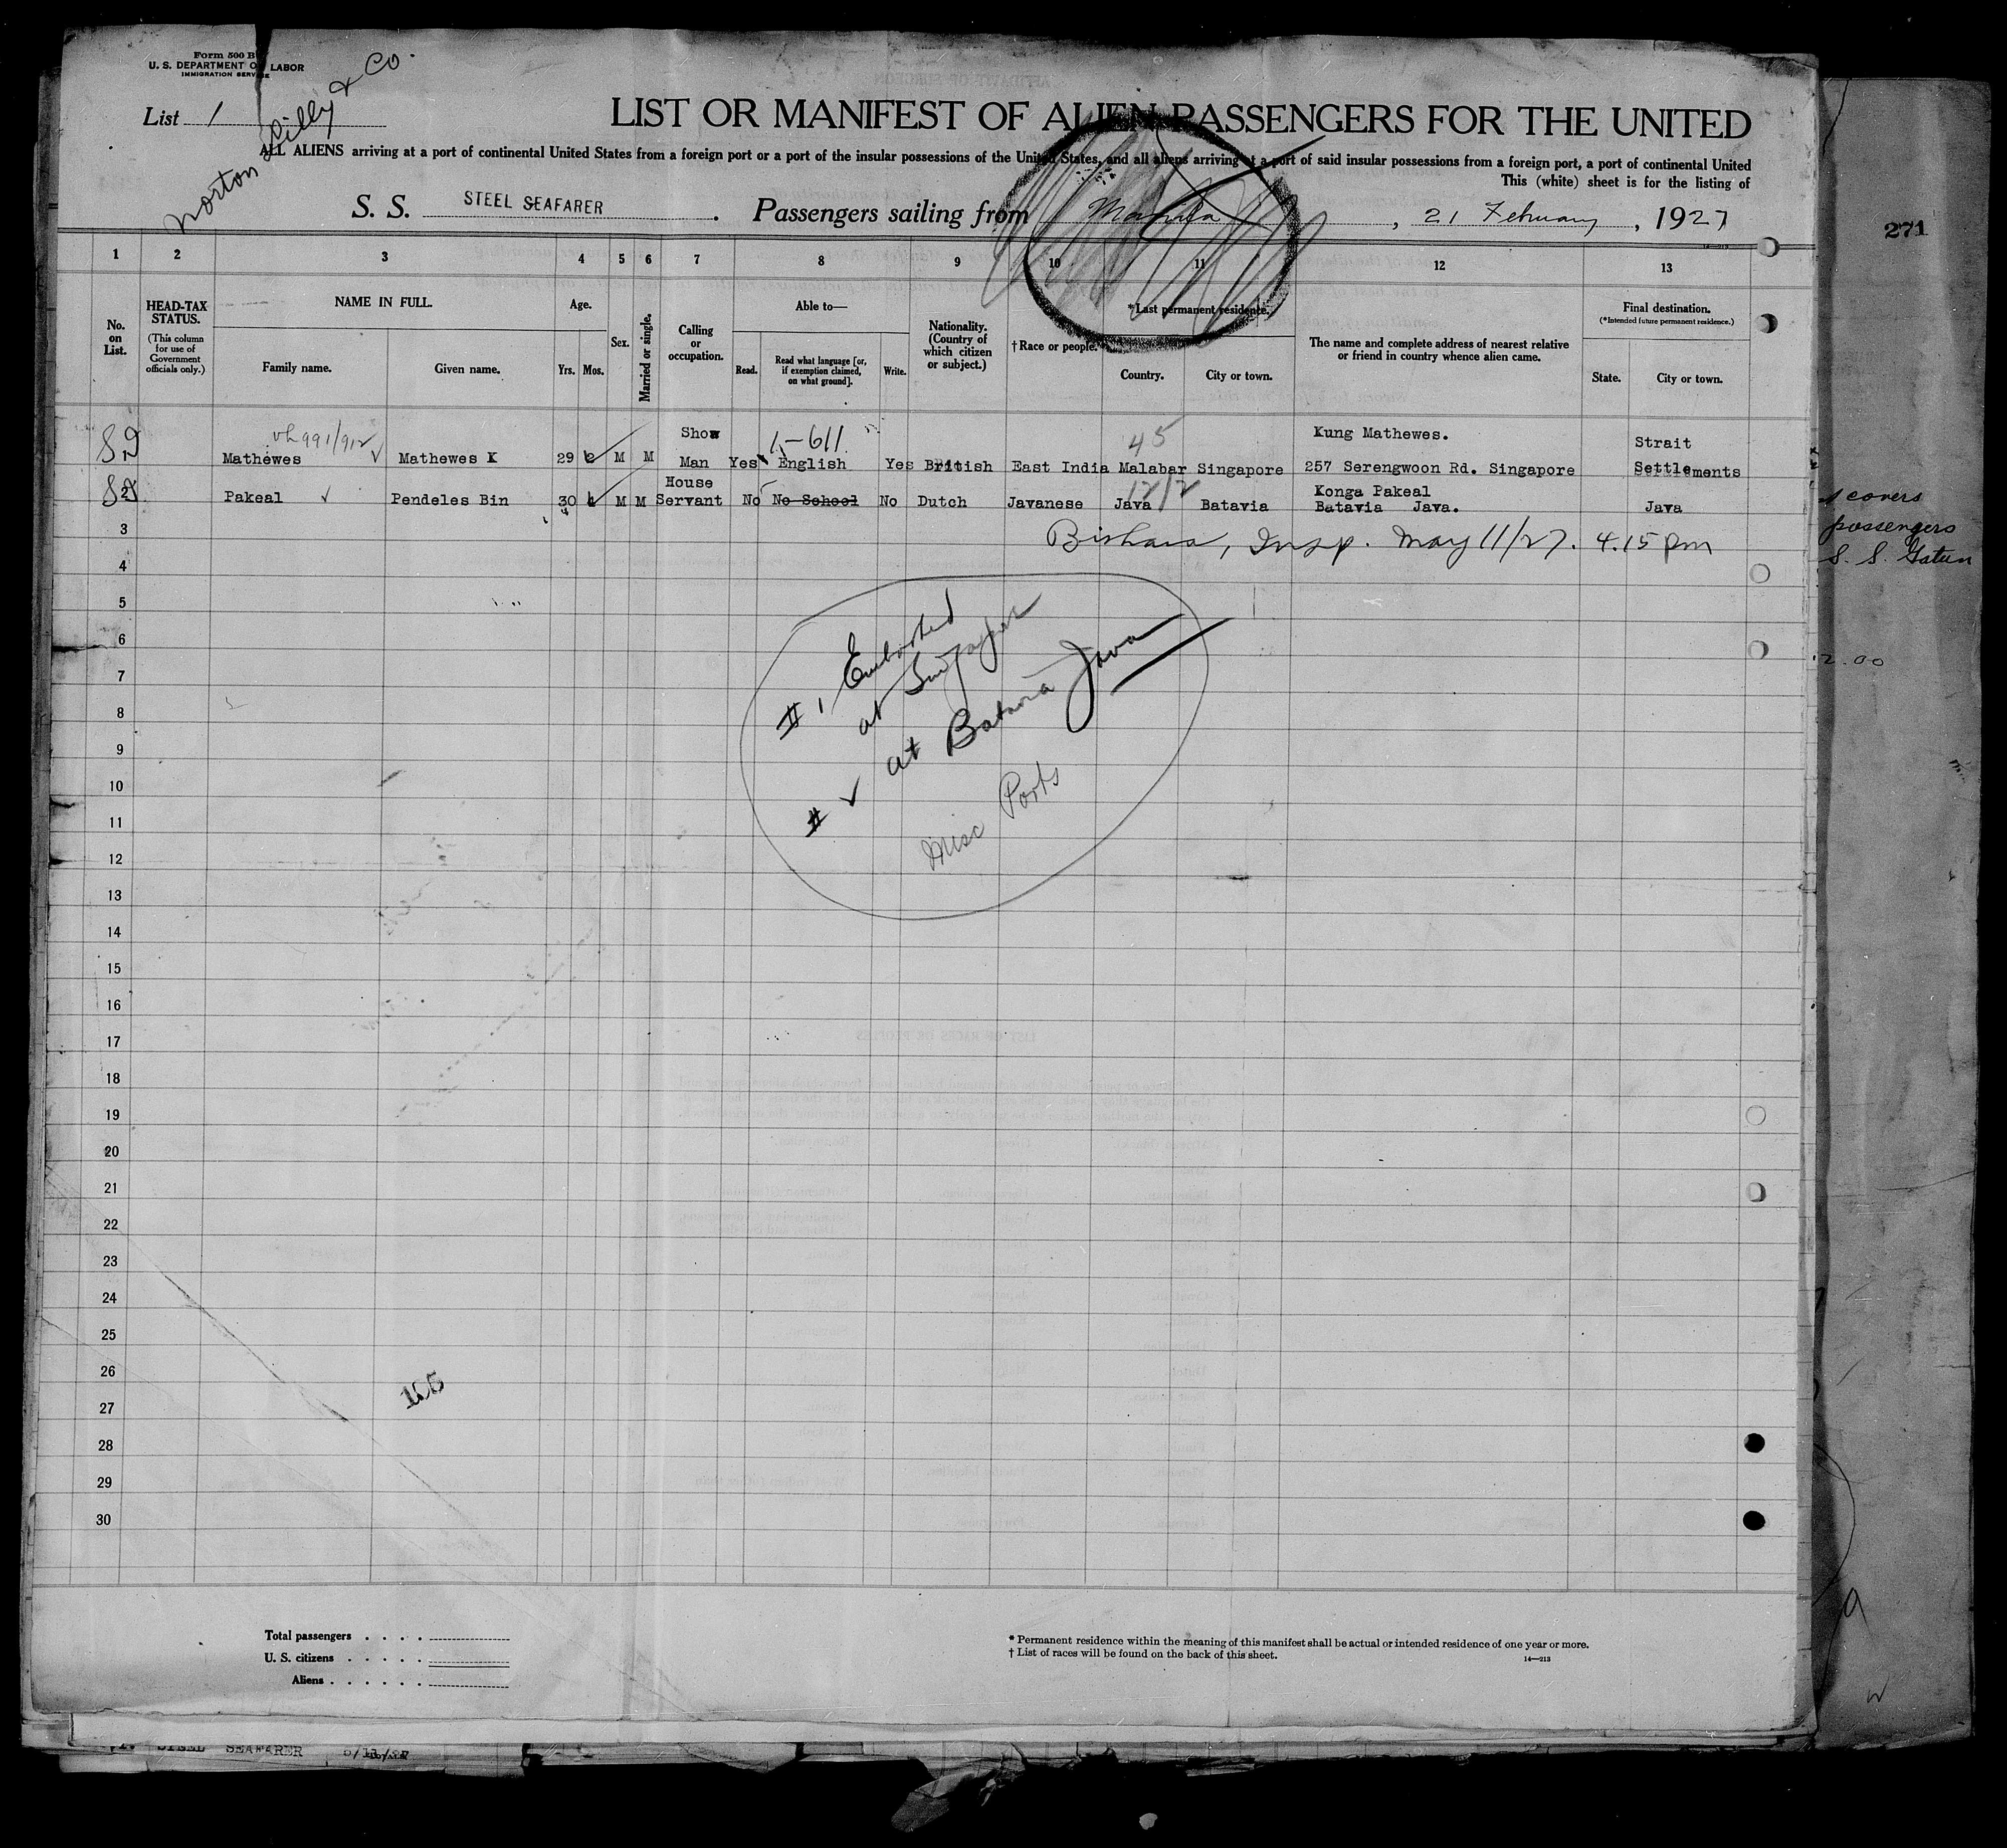 Form 500 B
U. S. DEPARTMENT OF LABOR
IMMIGRATION SERVICE
Norton Lilly & Co.
List 1
LIST OR MANIFEST OF ALIEN PASSENGERS FOR THE UNITED
ALL ALIENS arriving at a port of continental United States from a foreign port or a port of the insular possessions of the United States, and all aliens arriving at a port of said insular possessions from a foreign port, a port of continental United
This (white) sheet is for the listing of
S. S. STEEL SEAFARER. Passengers sailing from Manila, 21 February, 1927
271
1 2 3 4 5 6 7 8 9 10 11 12 13
No. on List.
HEAD-TAX STATUS.
(This column for use of Government officials only.)
NAME IN FULL.
Family name. Given name.
Age.
Yrs. Mos.
Sex.
Married or single.
Calling or occupation.
Able to—
Read. Read what language [or, if exemption claimed, on what ground]. Write.
Nationality. (Country of which citizen or subject.)
† Race or people.
*Last permanent residence.
Country. City or town.
The name and complete address of nearest relative or friend in country whence alien came.
Final destination.
(*Intended future permanent residence.)
State. City or town.
vh 991/912 Show 1-611 45 Kung Mathewes. Strait
Mathewes Mathewes K 29 M M Man Yes English Yes British East India Malabar Singapore 257 Serengwoon Rd. Singapore Settlements
House 12/2 Konga Pakeal
2 Pakeal Pendeles Bin 30 M M Servant No No School No Dutch Javanese Java Batavia Batavia Java. Java
3 Bishara, Insp. May 11/27. 4.15 pm
4
5
6
7
8
9
10
11
12
13
14
15
16
17
18
19
20
21
22
23
24
25
26
27
28
29
30
# 1 Embarked
at Singapore
# 2 at Batavia Java
Misc Ports
covers
passengers
S. S. Gatun
2.00
165
Total passengers . . . .
U. S. citizens . . . . .
Aliens . . . . . .
* Permanent residence within the meaning of this manifest shall be actual or intended residence of one year or more.
† List of races will be found on the back of this sheet.
14—213
STEEL SEAFARER 5/11/27